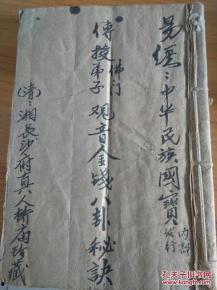 易经:中华民族國寳
内部
发行
佛门
傳授弟子观音金钱八卦秘訣
(清):湘長沙府真人衖庙珍藏